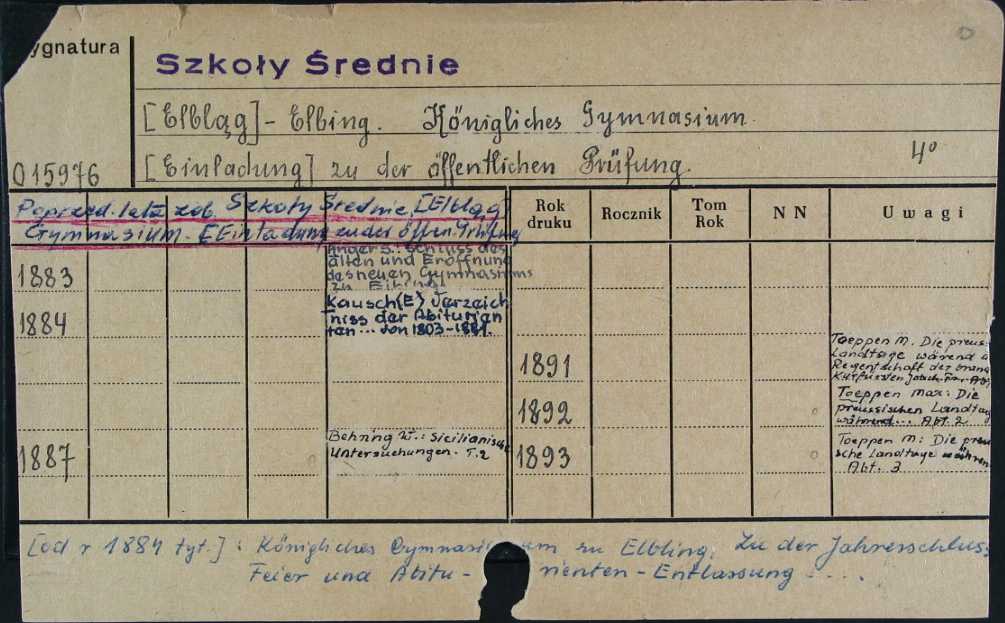 ygnatura
Szkoły Średnie
[Elbląg] - Elbing. Königliches Gymnasium.
015976
[Einladung] zu der öffentlichen Prüfung.
4°
Poprzed. lata zob. Szkoły Średnie. [Elbląg]
Gymnasium. [Einladung zu der öffen. Prüfung
Rok druku
Rocznik
Tom Rok
N N
Uwagi
1883
Anger S.: Schluss des
alten und Eröffnung
des neuen Gymnasiums
zu Elbing
1884
Kausch (E) Verzeich
niss der Abiturien
ten ... von 1803-1881.
1887
Behring W.: Sicilianische
Untersuchungen. T.2
1891
Toeppen M. Die preus
Landtage wärend d
Regentschaft der brang
Kurfürsten
1892
Toeppen Max: Die
preussischen Landtag
während ... Abt. 2
1893
Toeppen M: Die preu
sche Landtage währen
Abt. 3
[od r 1884 tyt.]: Königliches Gymnasium zu Elbling. Zu der Jahresschluss
Feier und Abitu- rienten - Entlassung ....